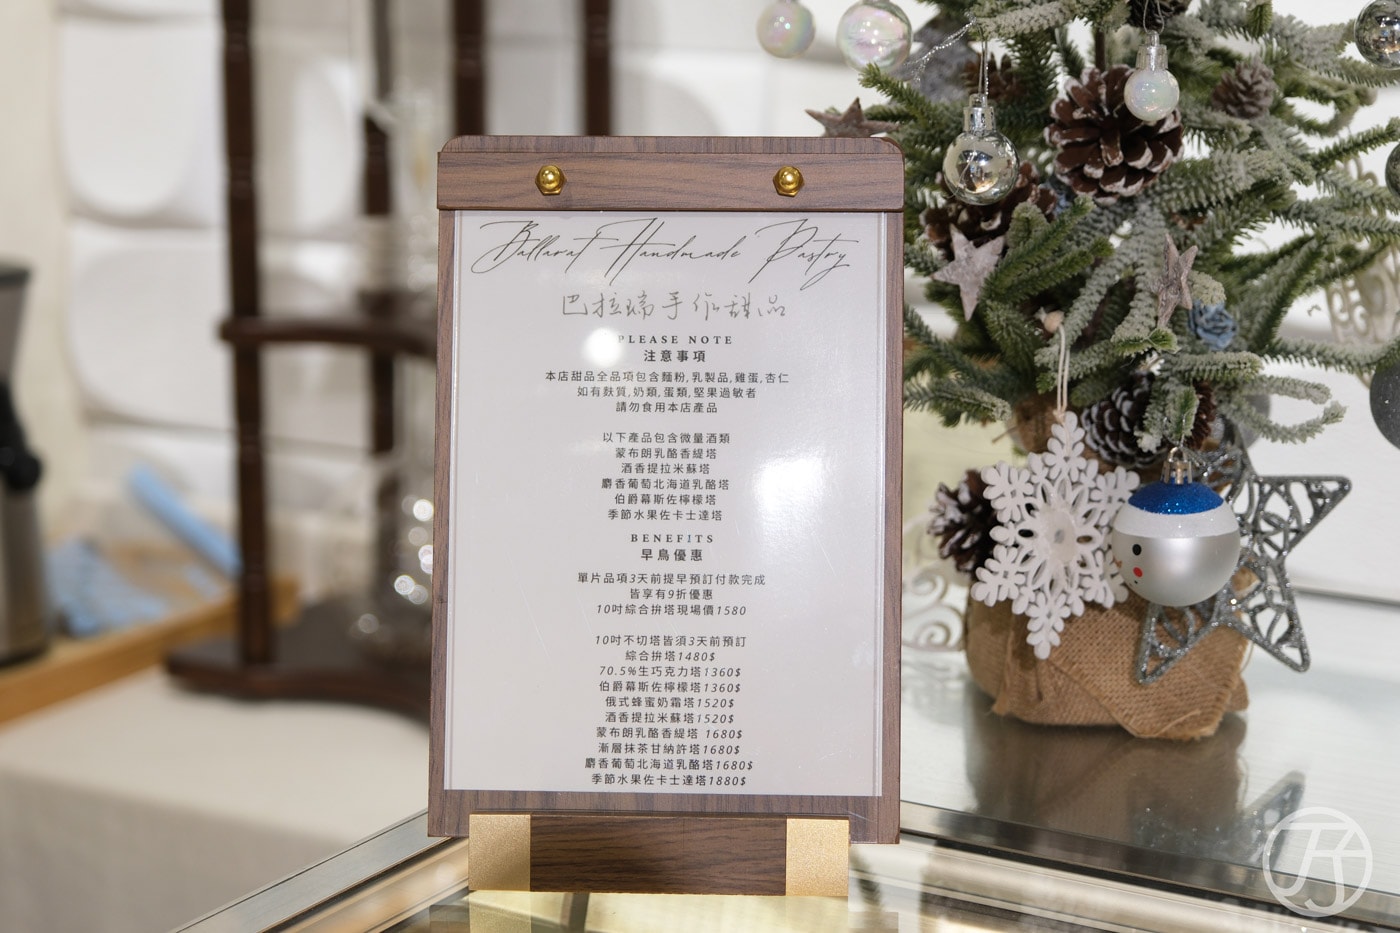 Ballarat Handmade Pastry
巴拉瑞手作甜品
PLEASE NOTE
注意事項
本店甜品全品項包含麵粉,乳製品,雞蛋,杏仁
如有麩質,奶類,蛋類,堅果過敏者
請勿食用本店產品
以下產品包含微量酒類
蒙布朗乳酪香緹塔
酒香提拉米蘇塔
麝香葡萄北海道乳酪塔
伯爵幕斯佐檸檬塔
季節水果佐卡士達塔
BENEFITS
早鳥優惠
單片品項3天前提早預訂付款完成
皆享有9折優惠
10吋綜合拼塔現場價1580
10吋不切塔皆須3天前預訂
綜合拼塔1480$
70.5%生巧克力塔1360$
伯爵幕斯佐檸檬塔1360$
俄式蜂蜜奶霜塔1520$
酒香提拉米蘇塔1520$
蒙布朗乳酪香緹塔 1680$
漸層抹茶甘納許塔1680$
麝香葡萄北海道乳酪塔1680$
季節水果佐卡士達塔1880$